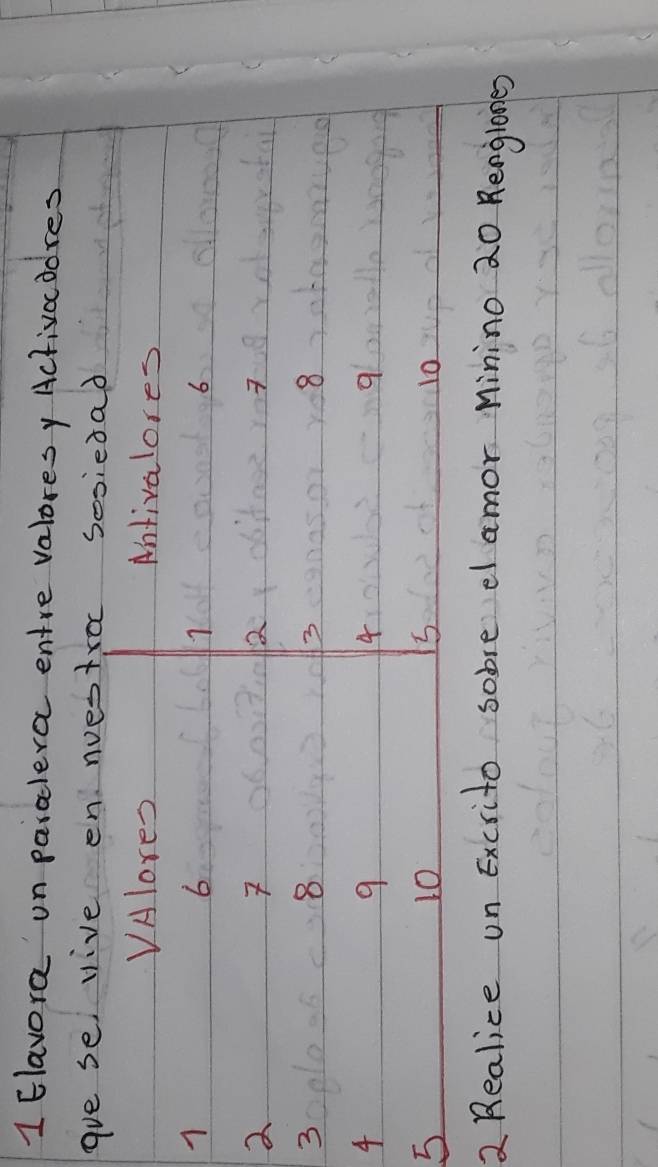 1 Elavora un paralera entre valores y Activadores
que se vive en nuestra sosiedad
VAlores Antivalores
1 6 1 6
2 7 2 7
3 8 3 8
4 9 4 9
5 10 5 10
2 Realice un Excrito sobre el amor Minino 20 Renglones